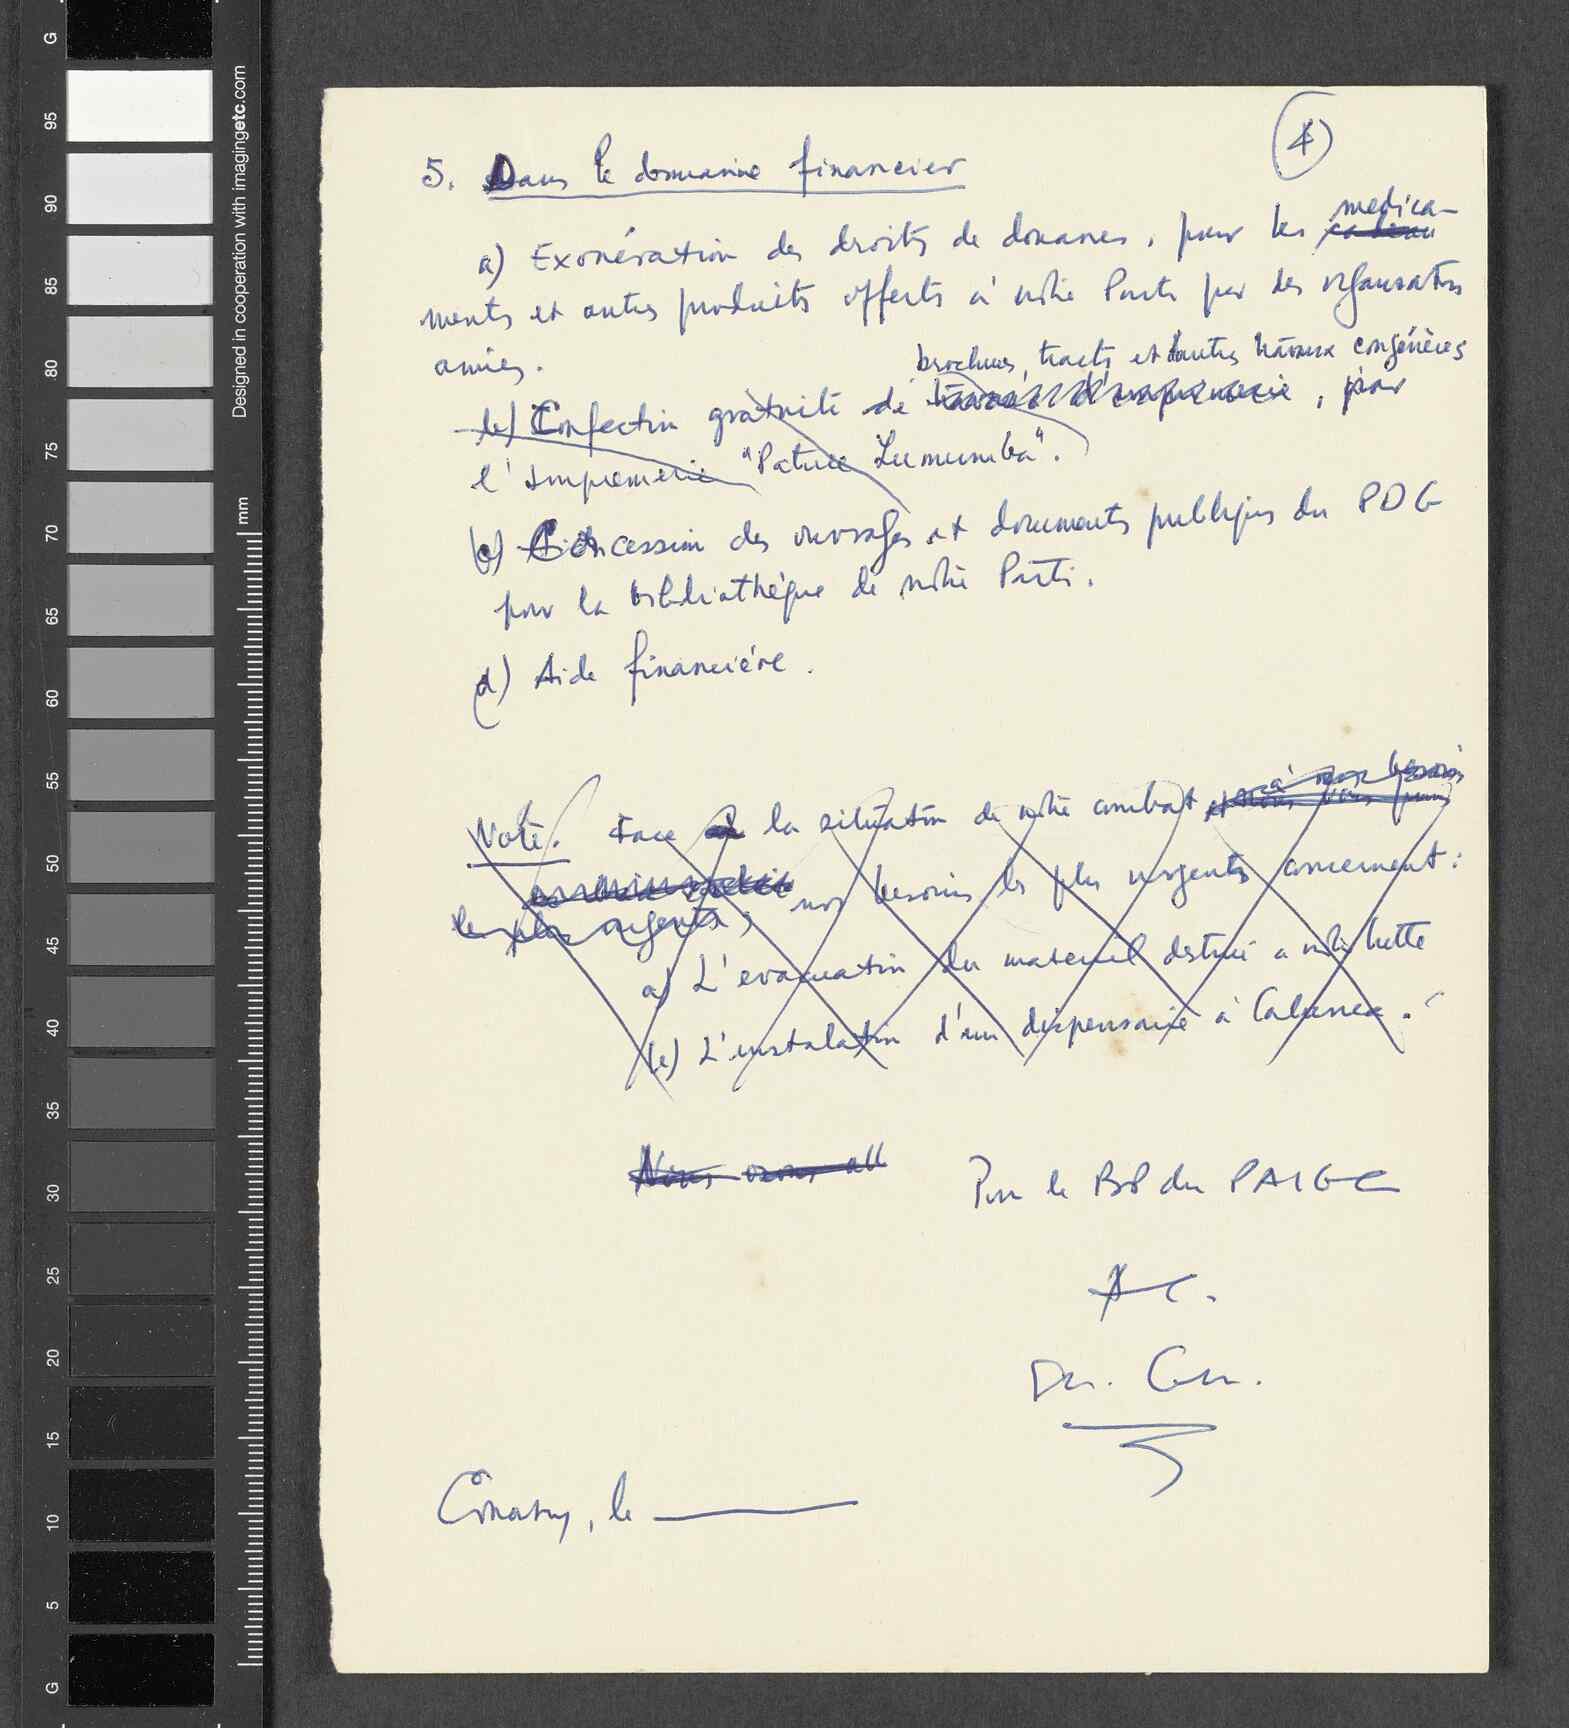 4
5. Dans le domaine financier
a) Exonération des droits de douanes, pour les medica-
ments et autres produits offerts à notre Parti par des organisations
amies.
brochures, tracts et d'autres travaux congénères
b) Confection gratuite de travaux d'imprimerie, par
l'Imprimerie "Patrice Lumumba".
b) Concession des ouvrages et documents publiques du PDG
pour la bibliathéque de notre Parti.
d) Aide financiére.
à nos besoins
Note: Face à la situation de notre combat et
nos besoins les plus urgents concernent:
les plus urgents,
a) L'evacuation du materiel destiné a notre lutte
b) L'instalation d'un dispensaire à
Nous avons all
Pour le BP du PAIGC
AC.
Conakry, le
G
95
90
85
80
75
70
65
60
55
50
45
40
35
30
25
20
15
10
5
G
Designed in cooperation with imagingetc.com
mm